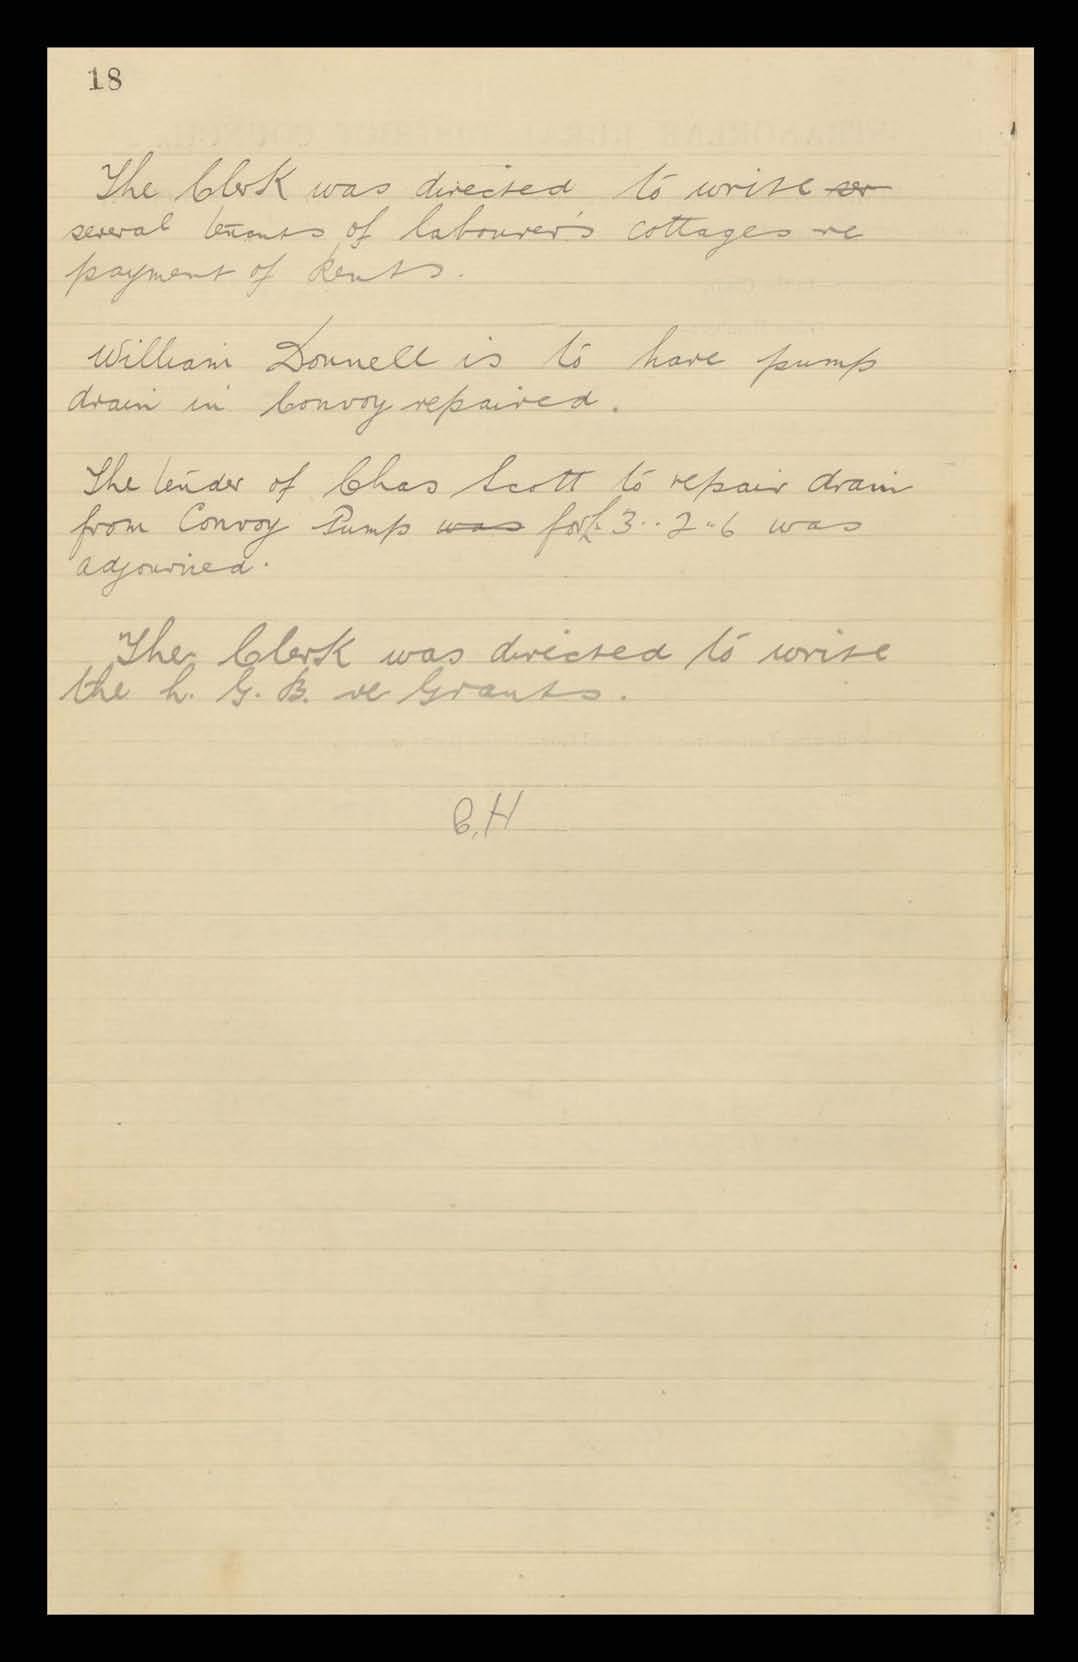 18
The Clerk was directed to write ser
several tenants of labourer's cottages re
payment of Rents.
William Donnell is to have pump
drain in Convoy repaired.
The tender of Chas Scott to repair drain
from Convoy Pump was for £3..2..6 was
adjourned.
The Clerk was directed to write
the L. G. B. re Grants.
C.H